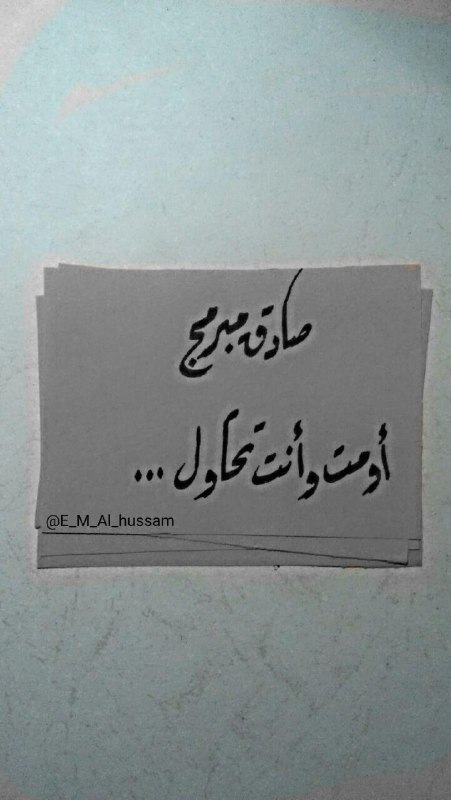 صادق مبرمج
أو مت وأنت تحاول ...
@E_M_Al_hussam